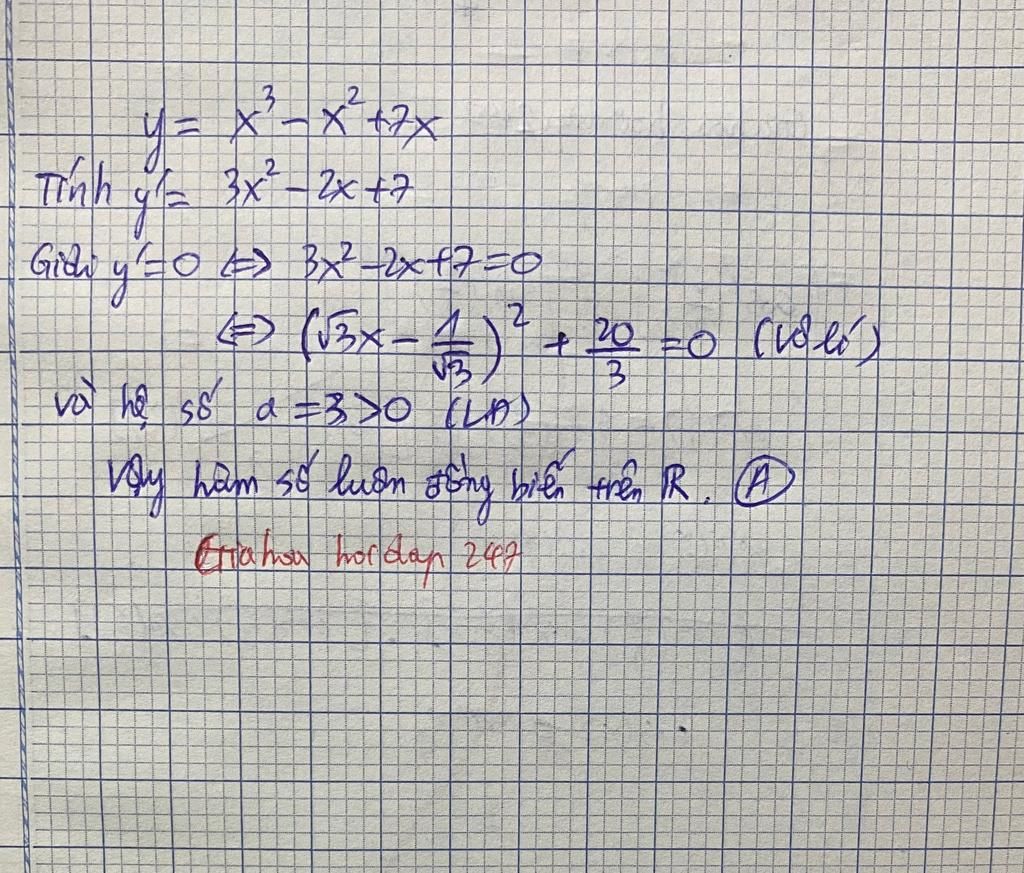 y = x³ - x² + 7x
Tính y' = 3x² - 2x + 7
Giải y' = 0 <=> 3x² - 2x + 7 = 0
<=> (√3x - 1/√3)² + 20/3 = 0 (vô lí)
và hệ số a = 3 > 0 (LĐ)
Vậy hàm số luôn đồng biến trên R. A
Giahuu hoidap 247